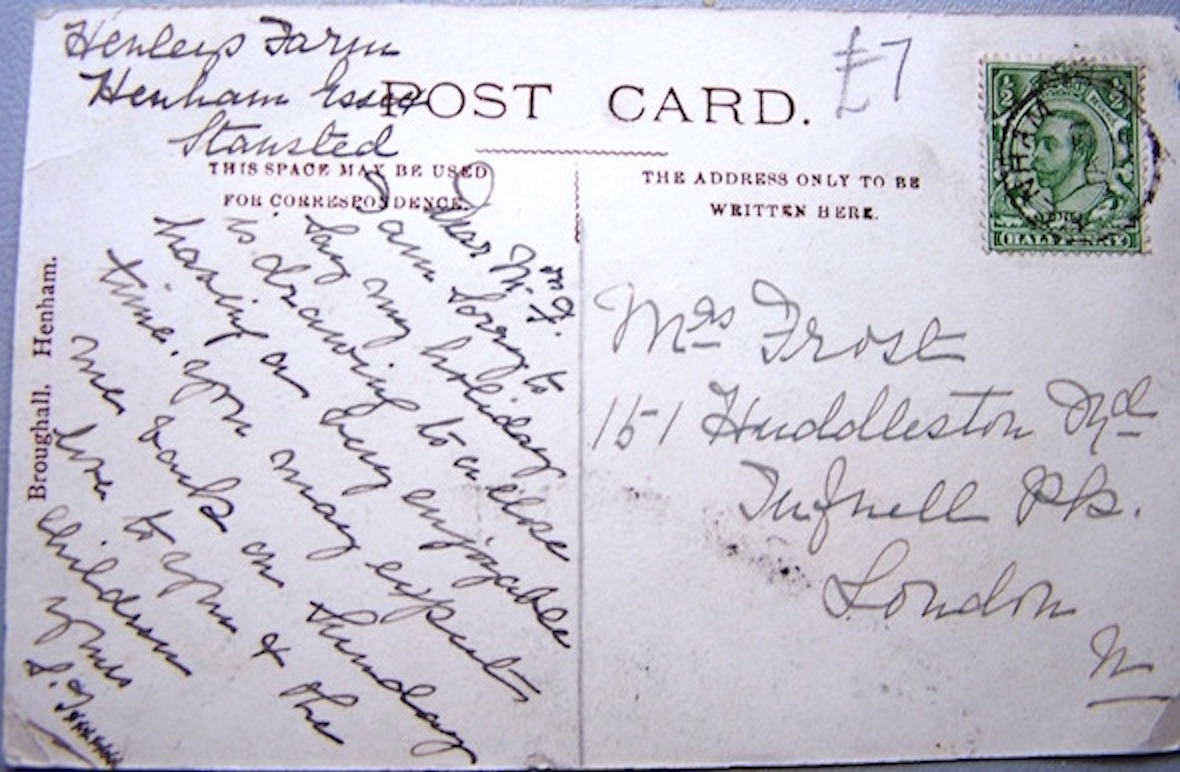 Henleys Farm
Henham Essex
Stansted
POST CARD.
£7
THIS SPACE MAY BE USED
FOR CORRESPONDENCE.
THE ADDRESS ONLY TO BE
WRITTEN HERE.
½ D
HALFPENNY
Dear Mrs F.
I am Sorry to
Say my holiday
is drawing to a close
having a very enjoyable
time. you may expect
me back on Thursday
love to you & the
children
yours
Mrs Frost
151 Huddleston Rd
Tufnell Pk.
London
N
Broughall. Henham.